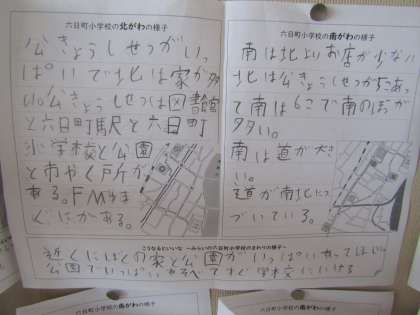 六日町小学校の北がわの様子
公きょうしせつがいっ
ぱいで北は家が多
い。公きょうしせつは図書館
と六日町駅と六日町
小学校と公園
と市やく戸斤が
ある。FMゆき
ぐにがある。
六日町小学校の南がわの様子
南は北よりお店が少ない
北は公きょうしせつが5こあっ
て南は6こで南のほうが
多い。
南は道が大き
い。
道が南北につ
づいている。
こうなるといいな ～みらいの六日町小学校のまわりの様子～
近くにぼくの家と公園がいっぱいあってほしい
公園でいっぱい
すぐ学校にいける
六日町小学校の南がわの様子